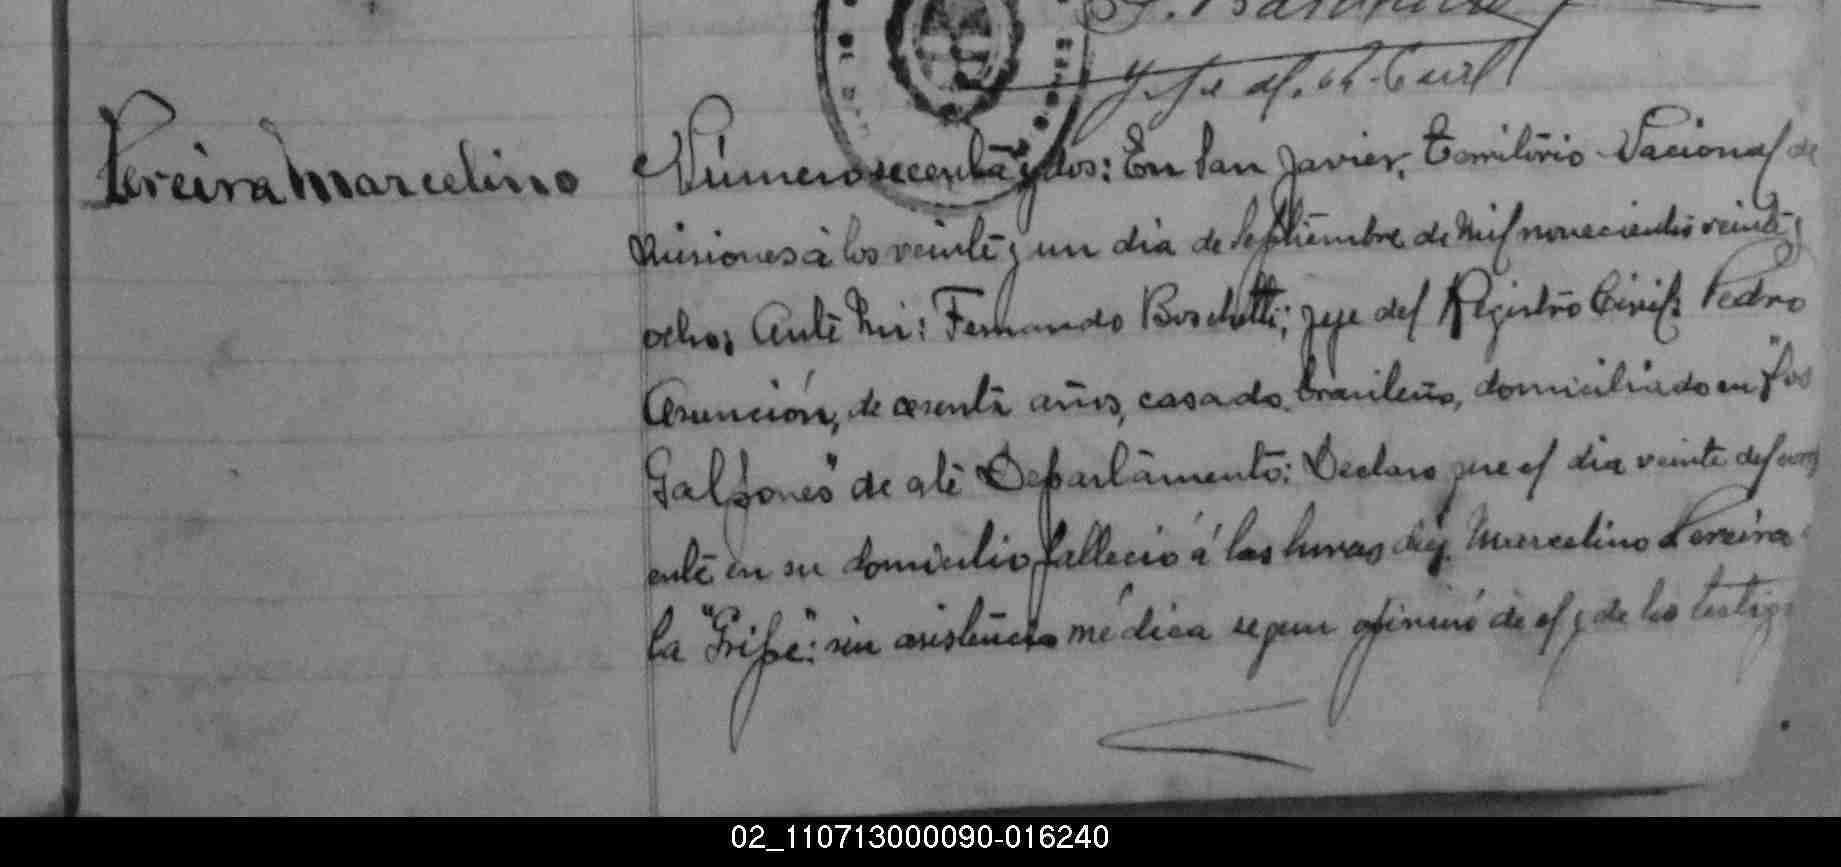 Jefe del R. Civil
Pereira Marcelino
Número secenta y dos: En San Javier, Território Nacional de
Misiones à los veinte y un dia de Septiembre de Mil novecientos veinte y
ocho; Ante Mi: Fernando Boschetti; Jefe del Registro Civil: Pedro
Asunción, de sesenta años, casado, brasileño, domiciliado en "los
Galpones" de este Departamento: Declaro que el dia veinte del corri
ente en su domicilio falleció á las horas diez Marcelino Pereira
la "Gripe": sin asistencia médica segun opinión de el y de los testigo
02_110713000090-016240